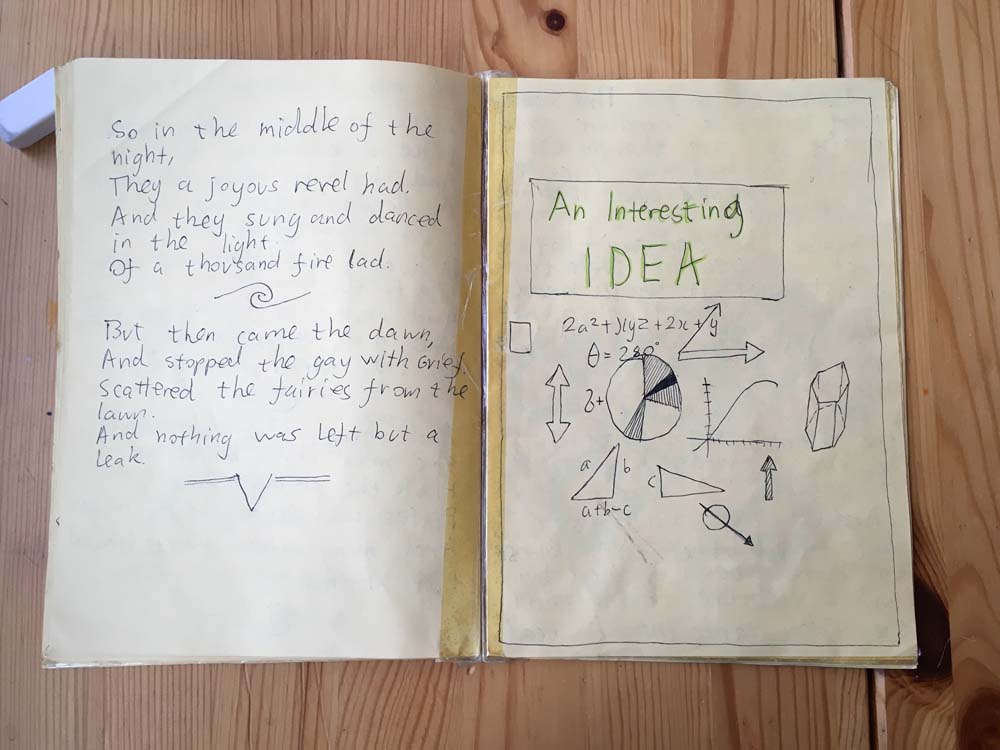 So in the middle of the
night,
They a joyous revel had.
And they sung and danced
in the light
Of a thousand fire lad.
But then came the dawn,
And stopped the gay with Grief.
Scattered the fairies from the
lawn.
And nothing was left but a
leak.
An Interesting
IDEA
2a²+xyz+2x+y
θ = 280°
8+
a b
a+b-c
c